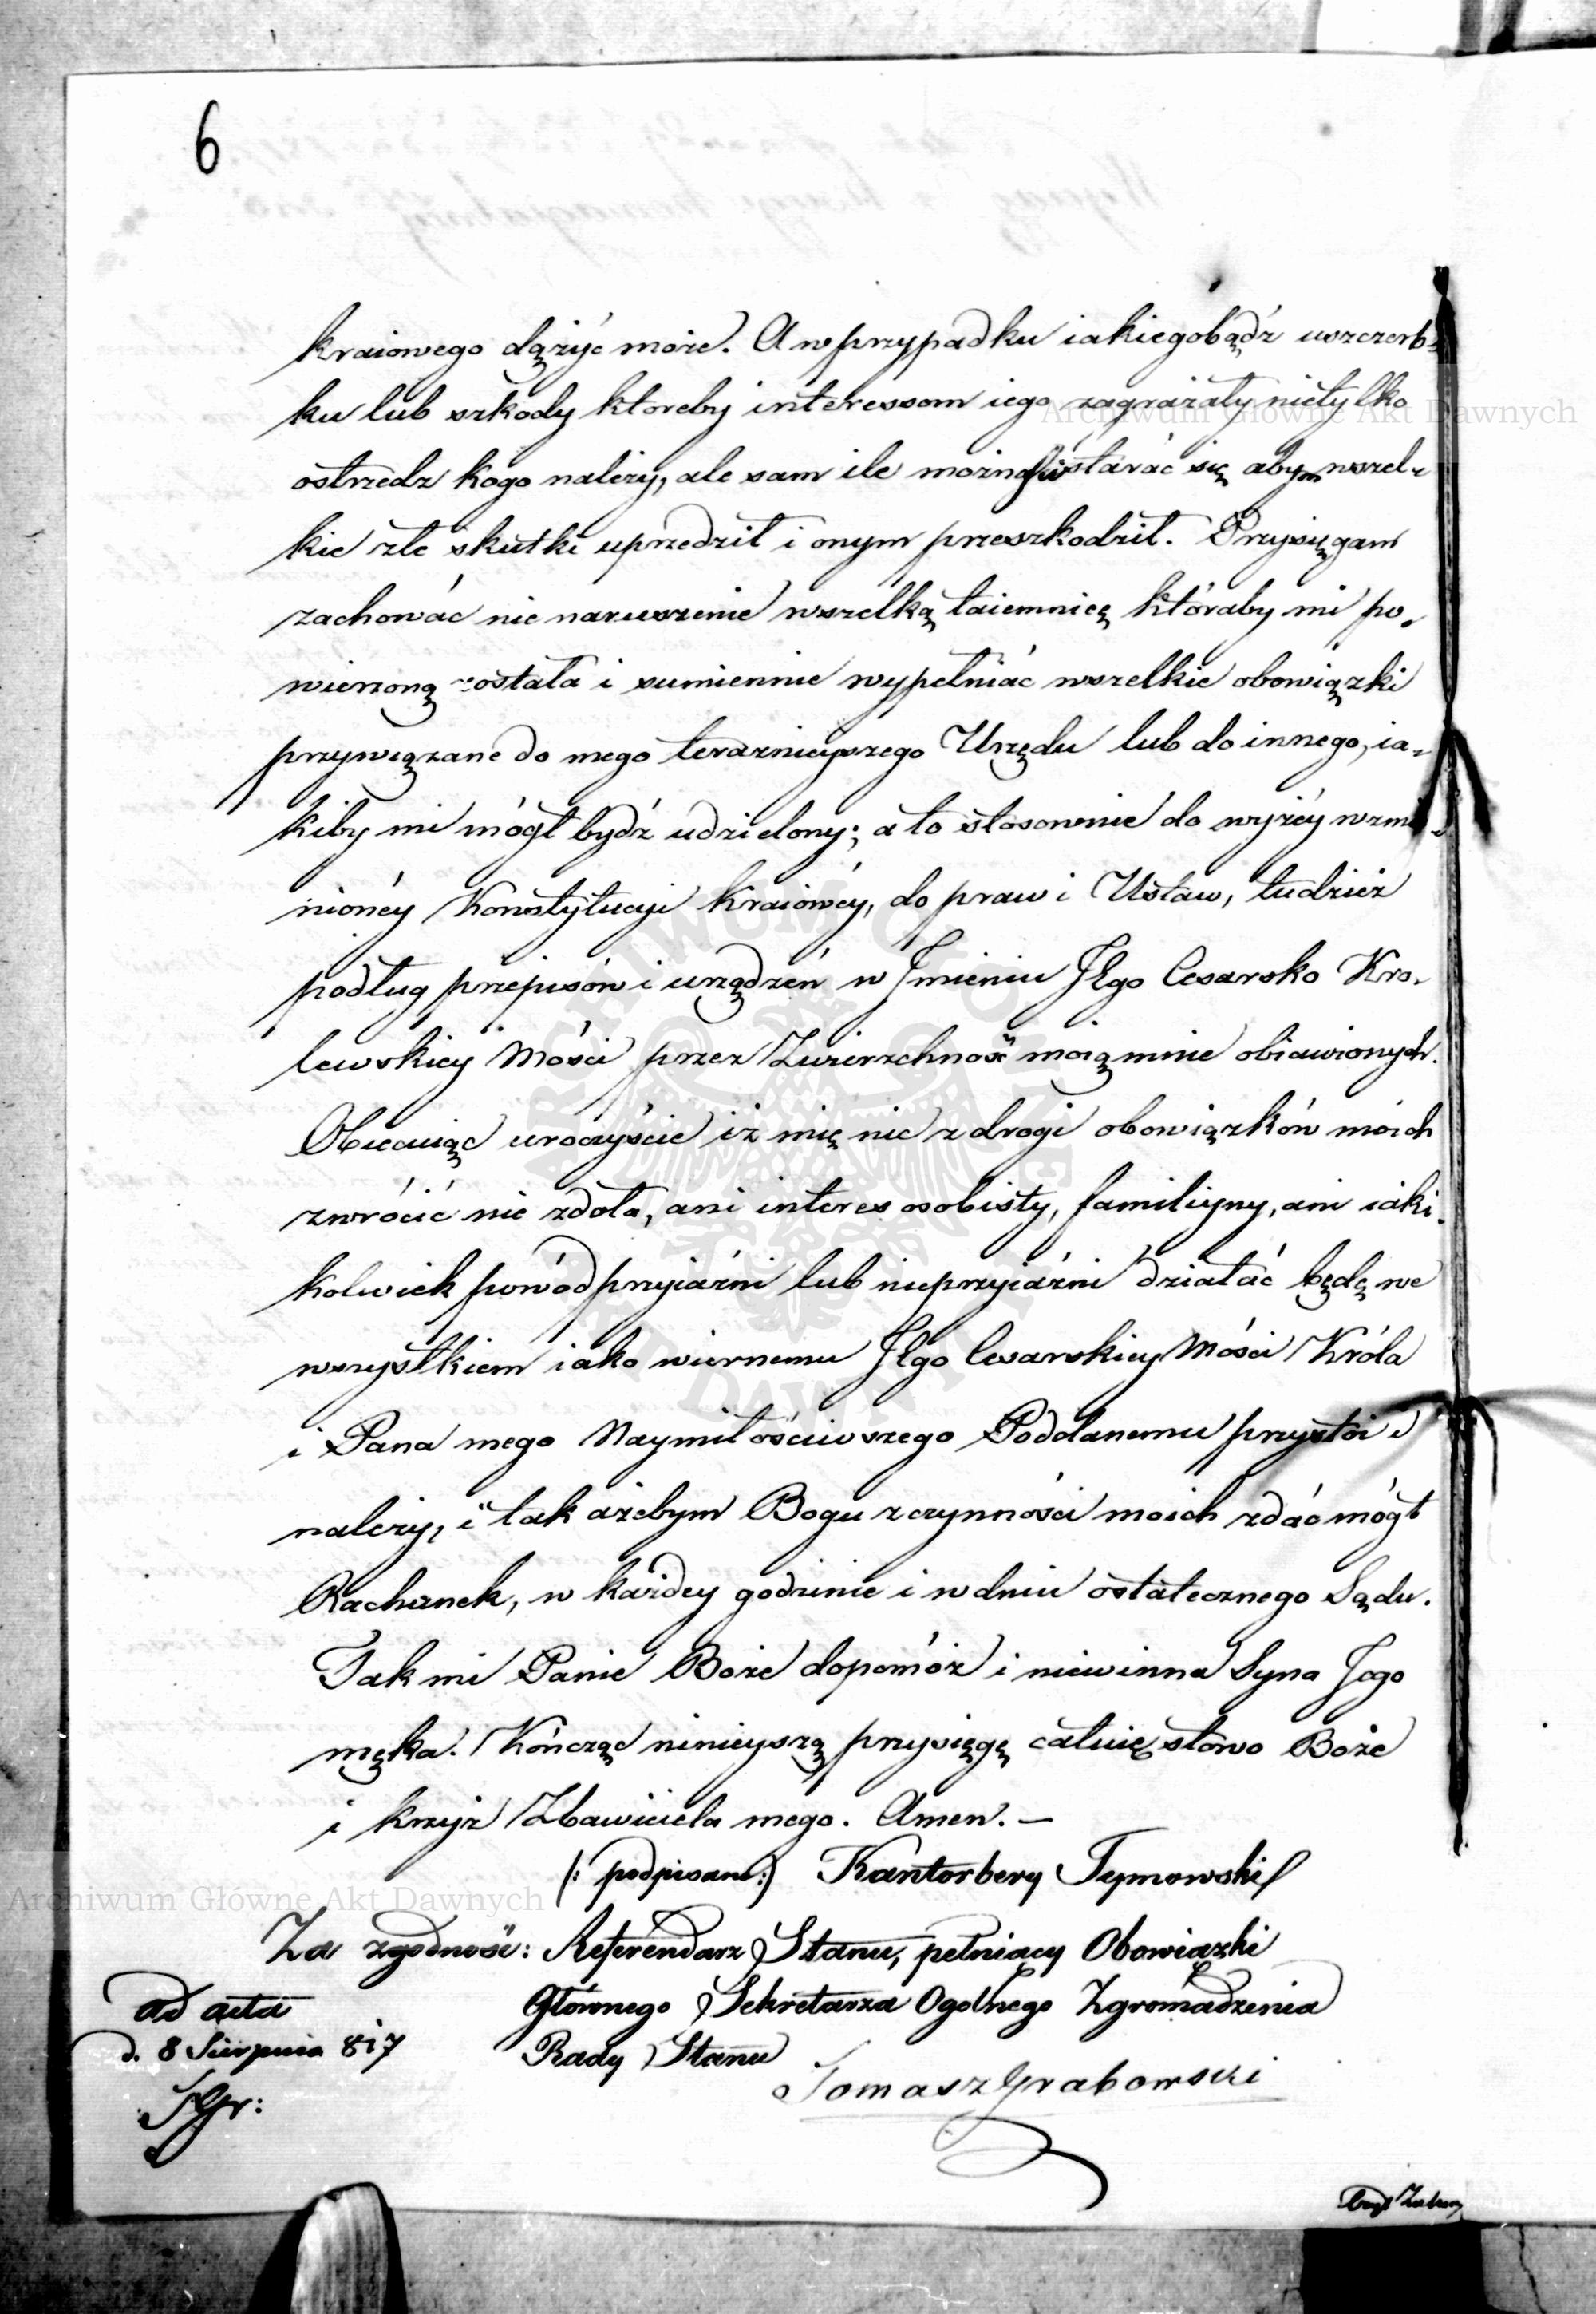 6
kraiowego dążyć może. A w przypadku iakiegobądź uszczerb-
ku lub szkody ktoreby interessom iego zagrażały nietylko
ostrzedz kogo należy, ale sam ile można starać się abym wszel-
kie złe skutki uprzedził i onym przeszkodził. Przysięgam
zachować nie naruszenie wszelką taiemnicę któraby mi po-
wierzoną została i sumiennie wypełniać wszelkie obowiązki
przywiązane do mego teraznieyszego Urzędu lub do innego, ia-
kiby mi mógł bydź udzielony; a to stosownie do wyżéy wzmi-
nionéy Konstytucyi Kraiowéy, do praw i Ustaw, tudzież
podług przepisów i urządzeń w Jmieniu JEgo Cesarsko Kro-
lewskiey Mości przez Zwierzchność moią mnie obiawionych.
Obiecuiąc uroczyście iż mię nic z drogi obowiązków moich
zwrócić nie zdoła, ani interes osobisty, familiyny, ani iaki-
kolwiek powód przyiaźni lub nieprzyiaźni działać będę we
wszystkiem iako wiernemu JEgo Cesarskiey Mości Króla
i Pana mego Naymiłościwszego Poddanemu przystoi i
należy, i tak ażebym Bogu z czynności moich zdać mógł
Rachunek, w każdey godzinie i w dniu ostatecznego Sądu.
Tak mi Panie Boże dopomóż i niewinna Syna Jego
męka. Kończąc ninieyszą przysięgę całuię słowo Boże
i krzyż Zbawiciela mego. Amen. —
(: podpisano :) Kantorbery Tymowski
Za zgodność: Referendarz Stanu, pełniący Obowiązki
Głównego Sekretarza Ogolnego Zgromadzenia
Rady Stanu
Tomasz Grabowski
ad acta
d. 8 Sierpnia 817
TGr:
Archiwum Główne Akt Dawnych
Archiwum Główne Akt Dawnych
ARCHIWUM GŁÓWNE AKT DAWNYCH